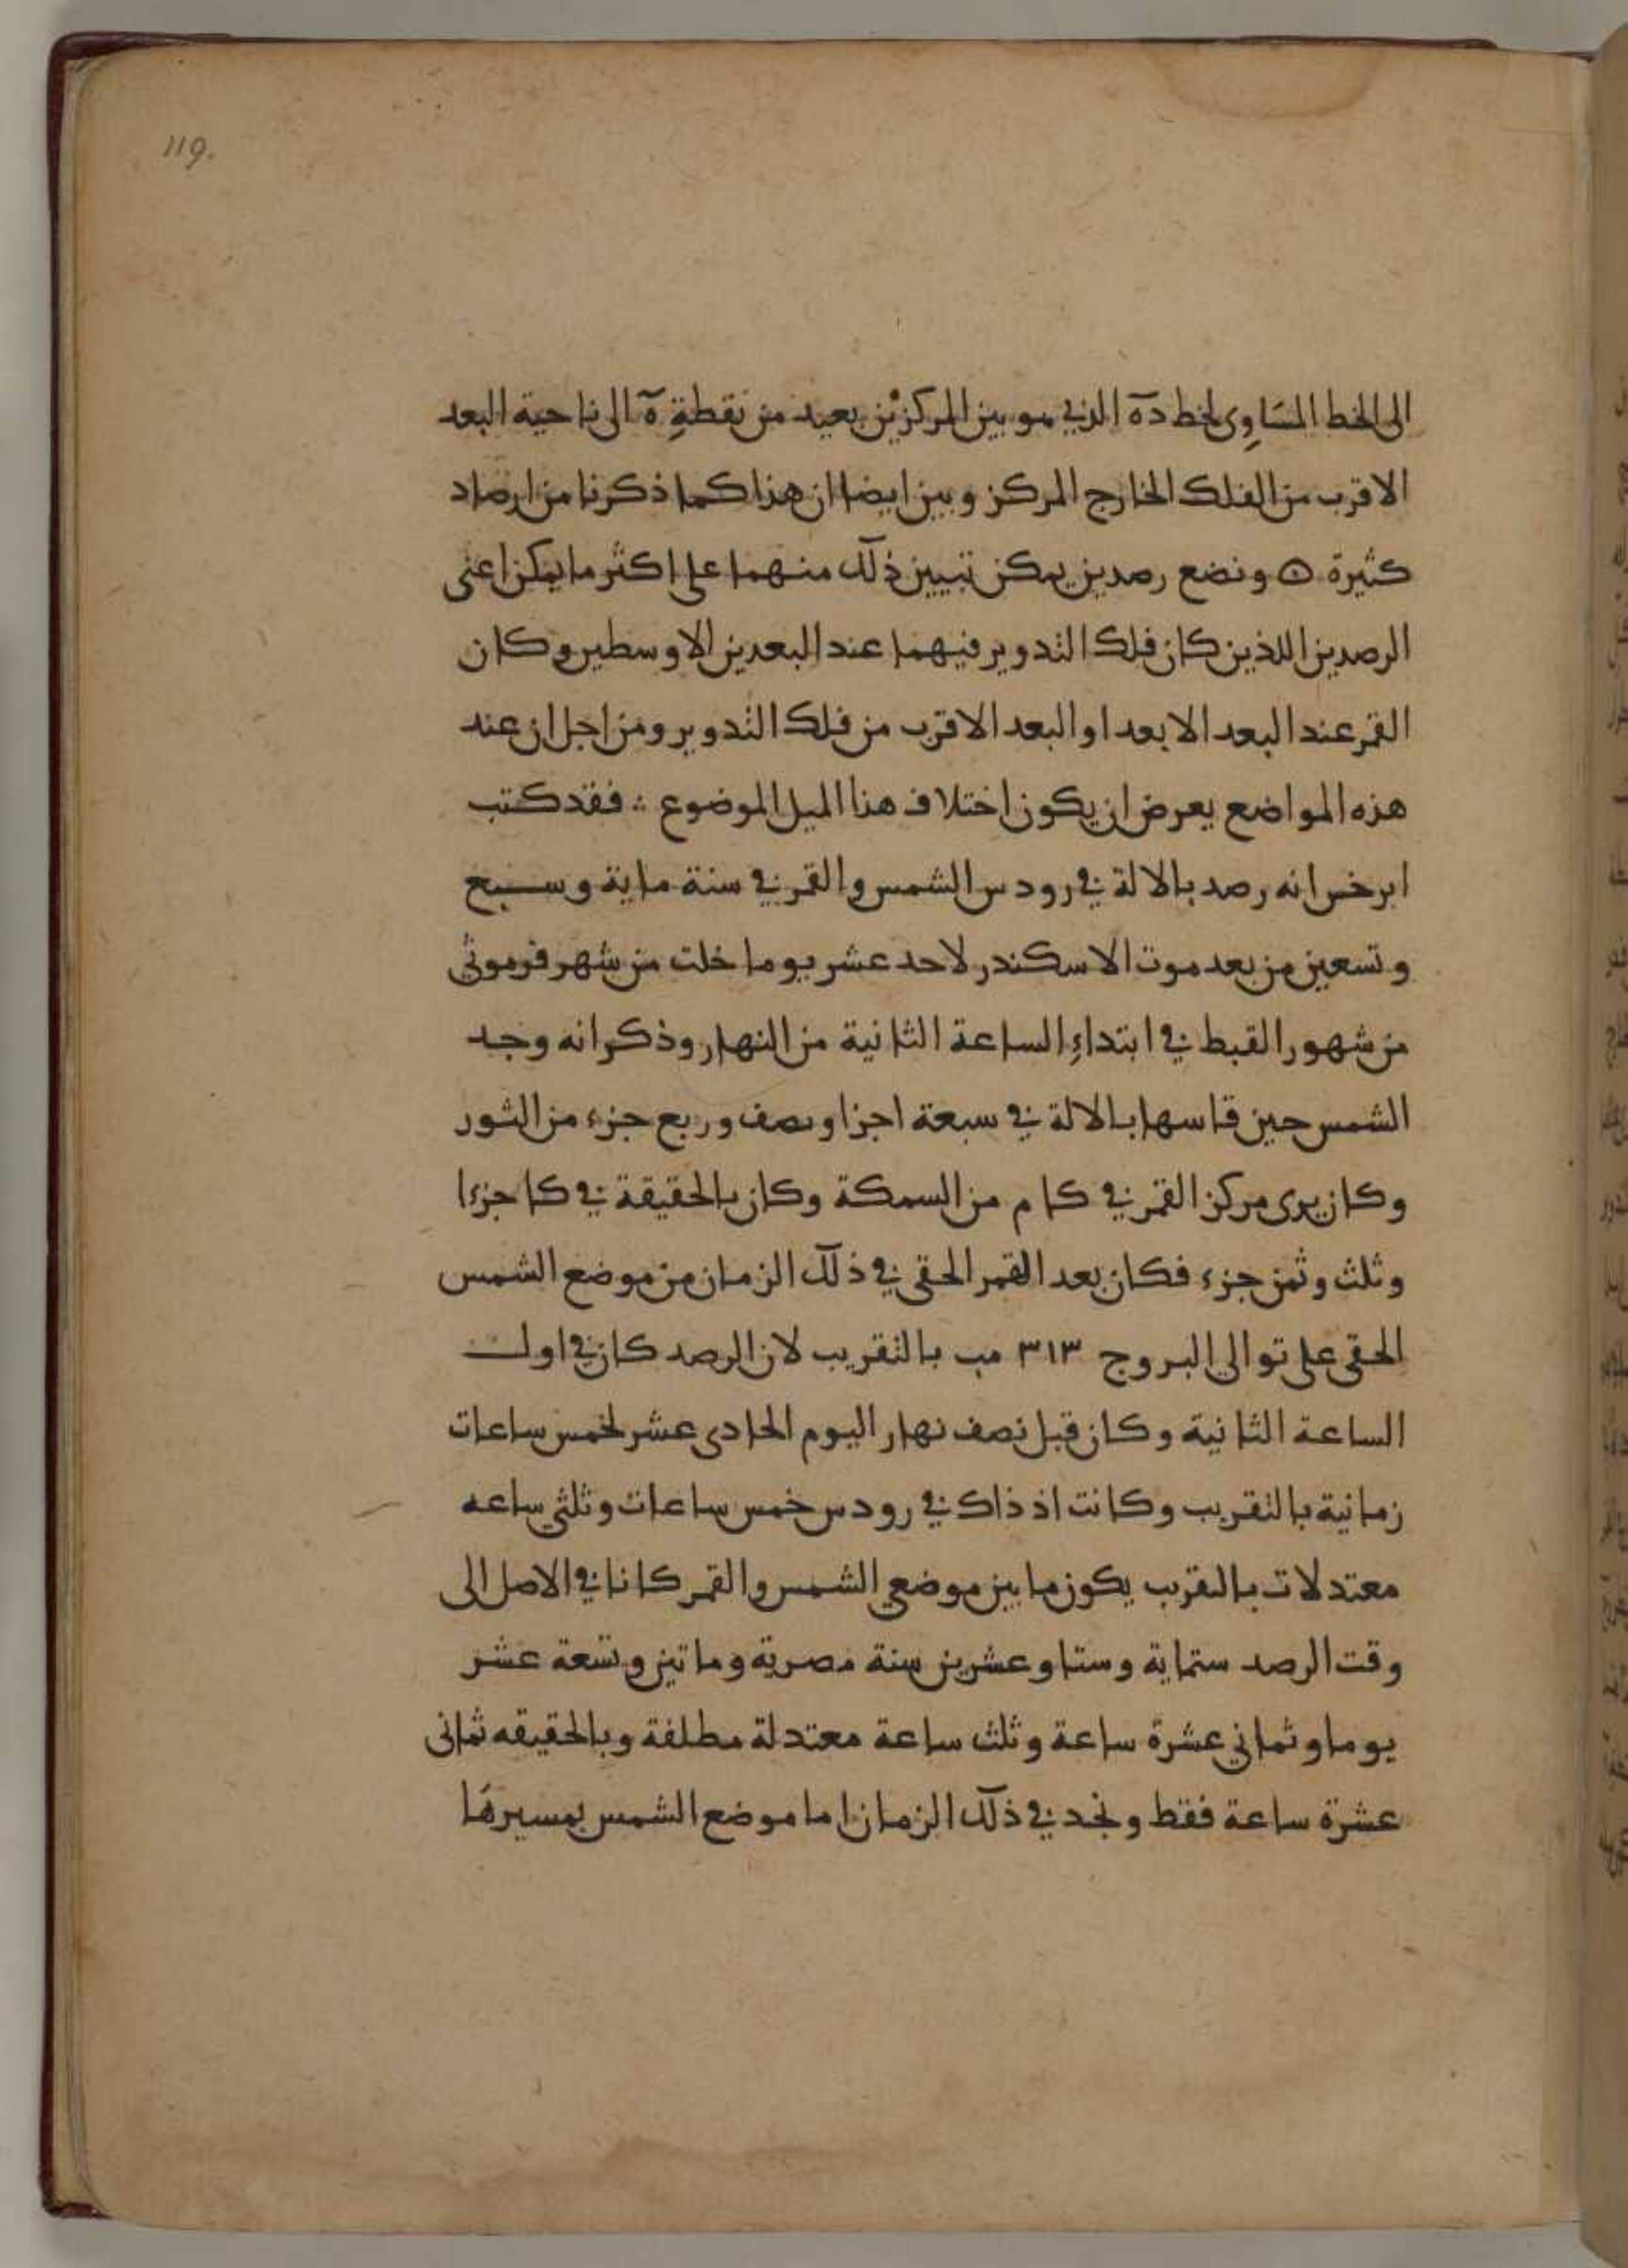 119.
الى الخط المسَاوِى لخط دة الذي هو بين المركزين بعيد من نقطةِ ة الى ناحية البعد
الاقرب من الفلك الخارج المركز وبين ايضا ان هذا كما ذكرنا من ارصاد
كثيرة ۞ ونضع رصدين يمكن تبيين ذلك منهما على اكثر ما يمكن اعنى
الرصدين اللذين كان فلك التدوير فيهما عند البعدين الاوسطين وكان
القمر عند البعد الابعد او البعد الاقرب من فلك التدوير ومن اجل ان عند
هذه المواضع يعرض ان يكون اختلاف هذا الميل الموضوع ∴ فقد كتب
ابرخس انه رصد بالالة في رودس الشمس والقمر في سنة ماية وسبع
وتسعين من بعد موت الاسكندر لاحد عشر يوما خلت من شهر فرموثى
من شهور القبط في ابتداءِ الساعة الثانية من النهار وذكر انه وجد
الشمس حين قاسها بالالة في سبعة اجزا ونصف وربع جزء من الثور
وكان يرى مركز القمر في كا م من السمكة وكان بالحقيقة في كا جزءا
وثلث وثمن جزء فكان بعد القمر الحقى في ذلك الزمان من موضع الشمس
الحقى على توالى البروج ٣١٣ مب بالتقريب لان الرصد كان في اول
الساعة الثانية وكان قبل نصف نهار اليوم الحادى عشر لخمس ساعات
زمانية بالتقريب وكانت اذ ذاك في رودس خمس ساعات وثلثى ساعه
معتدلات بالتقريب يكون ما بين موضعي الشمس والقمر كانا في الاصل الى
وقت الرصد ستماية وستا وعشرين سنة مصرية وماتين وتسعة عشر
يوما وثماني عشرة ساعة وثلث ساعة معتدلة مطلقة وبالحقيقه ثمانى
عشرة ساعة فقط ونجد في ذلك الزمان اما موضع الشمس بمسيرهَا